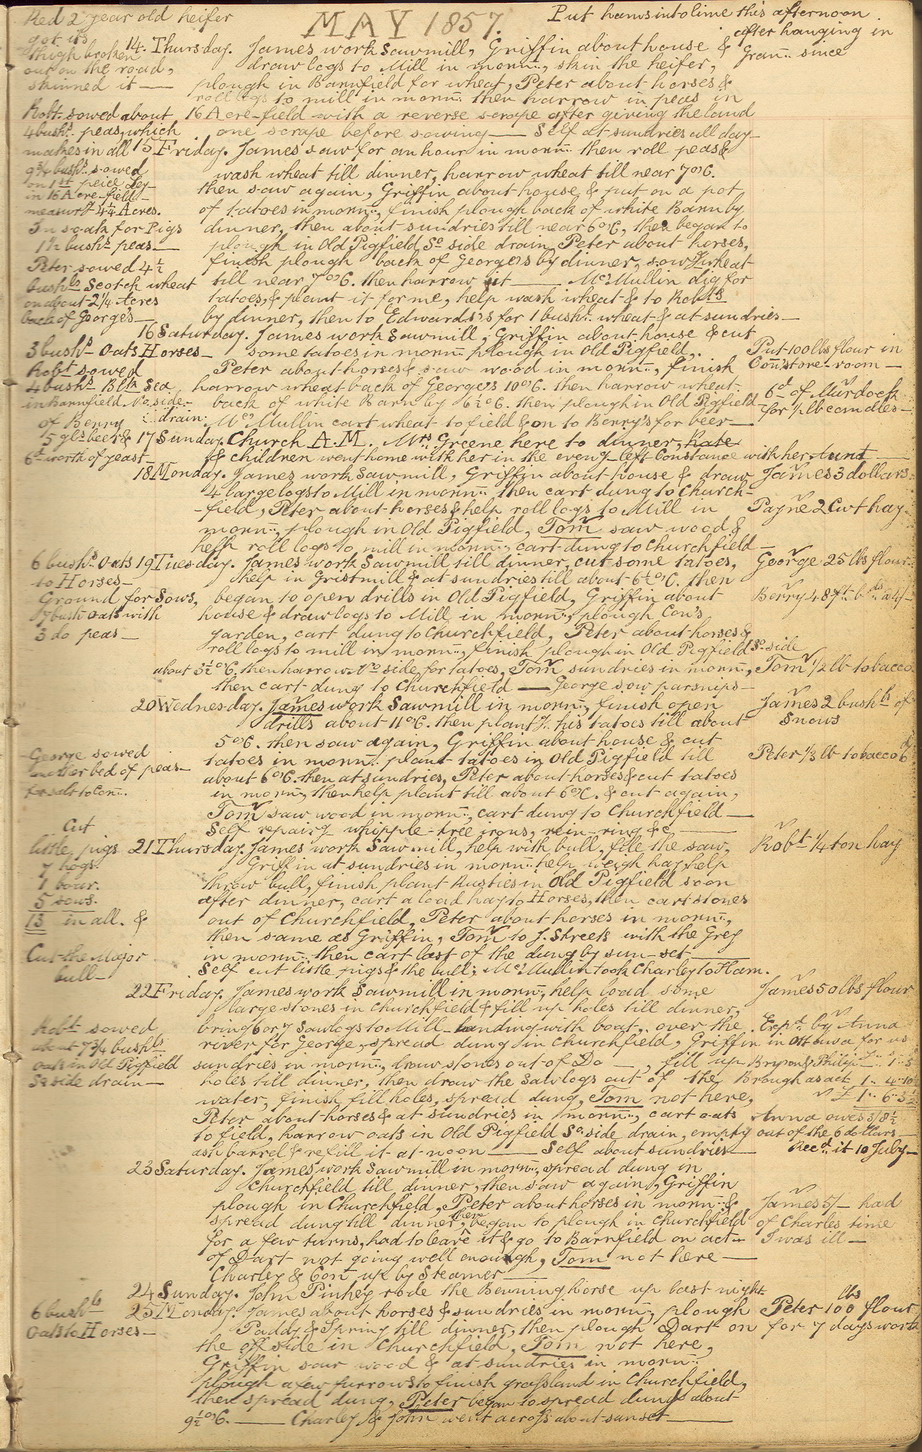 MAY 1857
Red 2 year old heifer
got its
thigh broken
out on the road,
skinned it —
Put hams into lime this afternoon
after hanging in
Gran.. since
14. Thursday. James work Sawmill, Griffin about house &
draw logs to Mill in morn.., skin the heifer,
plough in Barnfield for wheat, Peter about horses &
roll logs to mill in morn.. then harrow in peas in
16 Acre field with a reverse scrape after giving the land
one scrape before sowing — Self at sundries all day —
Robt. sowed about
4 bushs. peas, which
makes in all
9¾ bushs. sowed
on 1st peice
in 16 Acre field —
measurt. 4¼ Acres.
In soak for Pigs
1½ bushs. peas —
Peter sowed 4½
bushls Scotch wheat
on about 2¼ Acres
back of George's —
15 Friday. James saw for an hour in morn.. then roll peas &
wash wheat till dinner, harrow wheat till near 7 o'C.
then saw again, Griffin about house, & put on a pot
of tatoes in morn.., finish plough back of white Barn by
dinner, then about sundries till near 6 o'C, then began to
plough in Old Pigfield So. side drain, Peter about horses,
finish plough back of George's by dinner, sow wheat
till near 7 o'C. then harrow it — McMullin dig for
tatoes, & plant it for me, help wash wheat & to Robts
by dinner, then to Edwards's for 1 bush. wheat & at sundries —
3 bushs. Oats Horses —
Robt sowed
4 bushs. Blk Sea
in Barnfield No. side
drain.
16 Saturday. James work Sawmill, Griffin about house & cut
some tatoes in morn.. plough in Old Pigfield,
Peter about horses & saw wood in morn.., finish
harrow wheat back of George's 10 o'C. then harrow wheat
back of white Barn by 6½ o'C. then plough in Old Pigfield
McMullin cart wheat to field & on to Berry's for beer —
Put 100 lbs flour in
Con's store-room —
6d of Murdoch
for ½ lb candles —
of Berry
5 gls beer &
6d worth of yeast —
17 Sunday. Church A.M. Mrs Greene here to dinner,
& children went home with her in the eveng left Constance with her Aunt —
18 Monday. James work Sawmill, Griffin about house & draw
4 large logs to Mill in morn.. then cart dung to Church-
-field, Peter about horses & help roll logs to Mill in
morn.., plough in Old Pigfield, Tom saw wood &
help roll logs to mill in morn.., cart dung to Churchfield —
James 3 dollars
Payne 2 Cwt hay
6 bushs. Oats
to Horses —
Ground for Sows,
17 bush oats with
3 do peas —
19 Tuesday. James work Sawmill till dinner, cut some tatoes,
help in Gristmill & at sundries till about 6 o'C. then
began to open drills in Old Pigfield, Griffin about
house & draw logs to Mill in morn.., plough Con's
garden, cart dung to Churchfield, Peter about horses &
roll logs to mill in morn.., finish plough in Old Pigfield So. side
about 5½ o'C, then harrow No. side, for tatoes, Tom sundries in morn..,
then cart dung to Churchfield — George sow parsnips —
George 25 lbs flour
Tom ½ lb tobacco
20 Wednesday. James work Sawmill in morn.., finish open
drills about 11 o'C. then plant his tatoes till about
5 o'C. then saw again, Griffin about house & cut
tatoes in morn.. plant tatoes in Old Pigfield till
about 6 o'C. then at sundries, Peter about horses & cut tatoes
in morn.., then help plant till about 6 o'C. & cut again,
Tom saw wood in morn.., cart dung to Churchfield —
Self repairg whipple-tree irons, rein-ring &c —
James 2 bushls of
Snows
Peter ½ lb tobacco
George sowed
another bed of peas —
Cut
little pigs
7 hogs.
1 boar.
5 sows.
13 in all. &
Cut the Major
bull —
21 Thursday. James work Sawmill, help with bull, file the saw,
Griffin at sundries in morn.. help weigh hay, help
throw bull, finish plant Rusties in Old Pigfield soon
after dinner, cart a load hay to Horses, then cart stones
out of Churchfield, Peter about horses in morn..,
then same as Griffin, Tom to J. Streets with the Grey
in morn.. then cart last of the dung by sun-set —
Self cut little pigs & the bull, McMullin took Charley to Ham.
Robt ¼ ton hay
22 Friday. James work Sawmill in morn.., help load some
large stones in Churchfield & fill up holes till dinner,
bring 6 or 7 Sawlogs to Mill-landing with boat, over the
river for George, spread dung in Churchfield, Griffin in
sundries in morn.., draw stones out of Do —, fill up
holes till dinner, then draw the Sawlogs out of the
water, finish fill holes, spread dung, Tom not here,
Peter about horses & at sundries in morn.., cart oats
to field, harrow oats in Old Pigfield So. side drain, empty
ash barrel & refill it at noon — Self about sundries
Robt sowed
about 7¾ bushls
oats in Old Pigfield
So. side drain —
James 50 lbs flour
Expd by Anna
Ottawa for us
Bryson & Philip
Brough as act 1.. 4.10
£1.. 6.3½
Anna owes 3/8½
out of the 6 dollars —
Recd. it 10 July —
23 Saturday. James work Sawmill in morn.., spread dung in
Churchfield till dinner, then saw again, Griffin
plough in Churchfield, Peter about horses in morn.. &
spread dung till dinner, then began to plough in Churchfield
for a few turns, had to leave it & go to Barnfield on act —
of Dart not going well enough, Tom not here —
Charley & Con up by Steamer —
James 5/- had
of Charles time
I was ill —
24 Sunday. John Pinhey rode the Benning horse up last night
6 bushls
Oats to Horses —
25 Monday. James about horses & sundries in morn.. plough
Paddy & Spring till dinner, then plough Dart on
the off side in Churchfield, Tom not here,
Griffin saw wood & at sundries in morn..
plough a few furrows to finish grassland in Churchfield,
then spread dung, Peter began to spread dung about
9½ o'C. — Charley & John went across about sunset —
Peter 100 lbs flour
for 7 days work